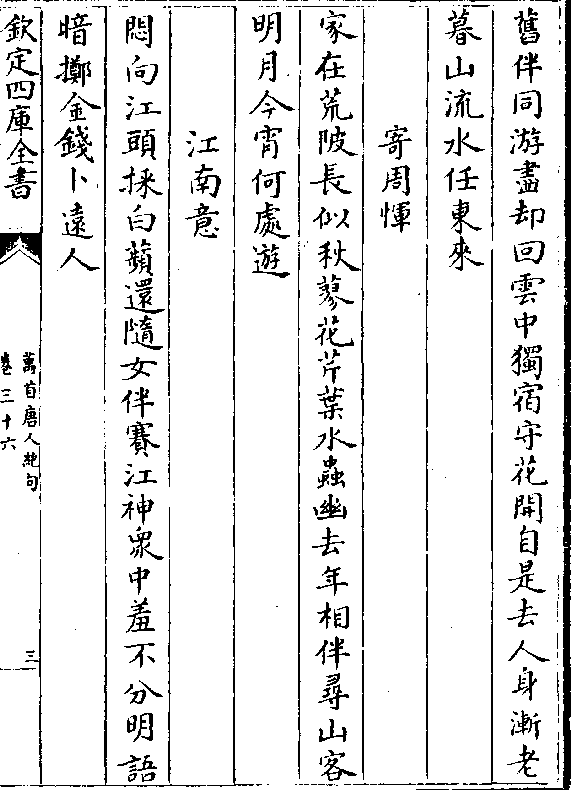 舊伴同游盡却回雲中獨宿守花開自是去人身漸老
暮山流水任東來
寄周惲
家在荒陂長似秋蓼花芹葉水蟲幽去年相伴尋山客
明月今宵何處遊
江南意
悶向江頭採白蘋還隨女伴賽江神衆中羞不分明語
暗擲金錢卜遠人
欽定四庫全書
萬首唐人絶句
卷三十六
三